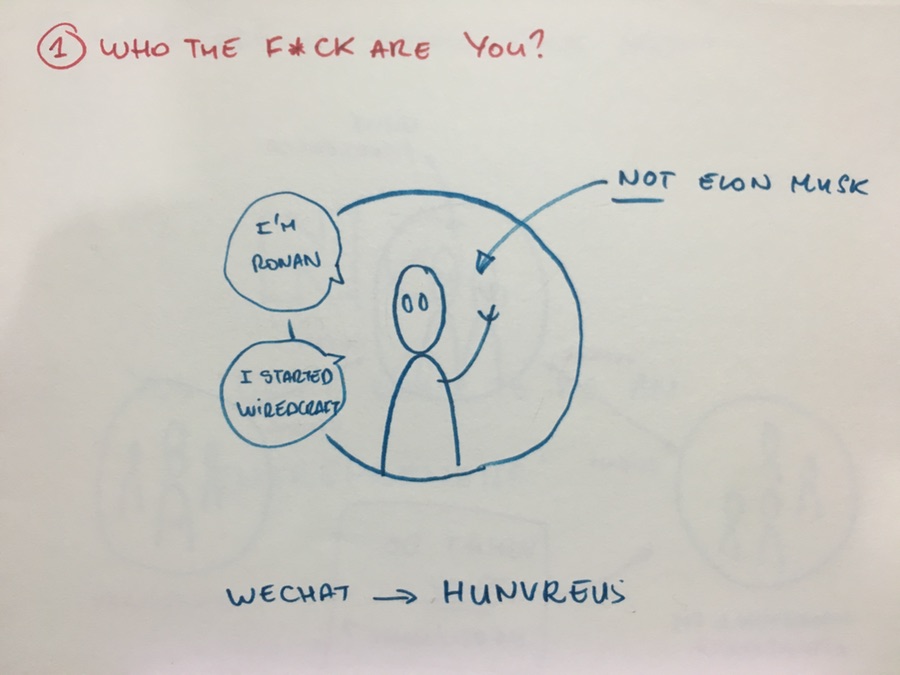 1 WHO THE F*CK ARE YOU?
NOT ELON MUSK
I'M
RONAN
I STARTED
WIREDCRAFT
WECHAT → HUNVREUS